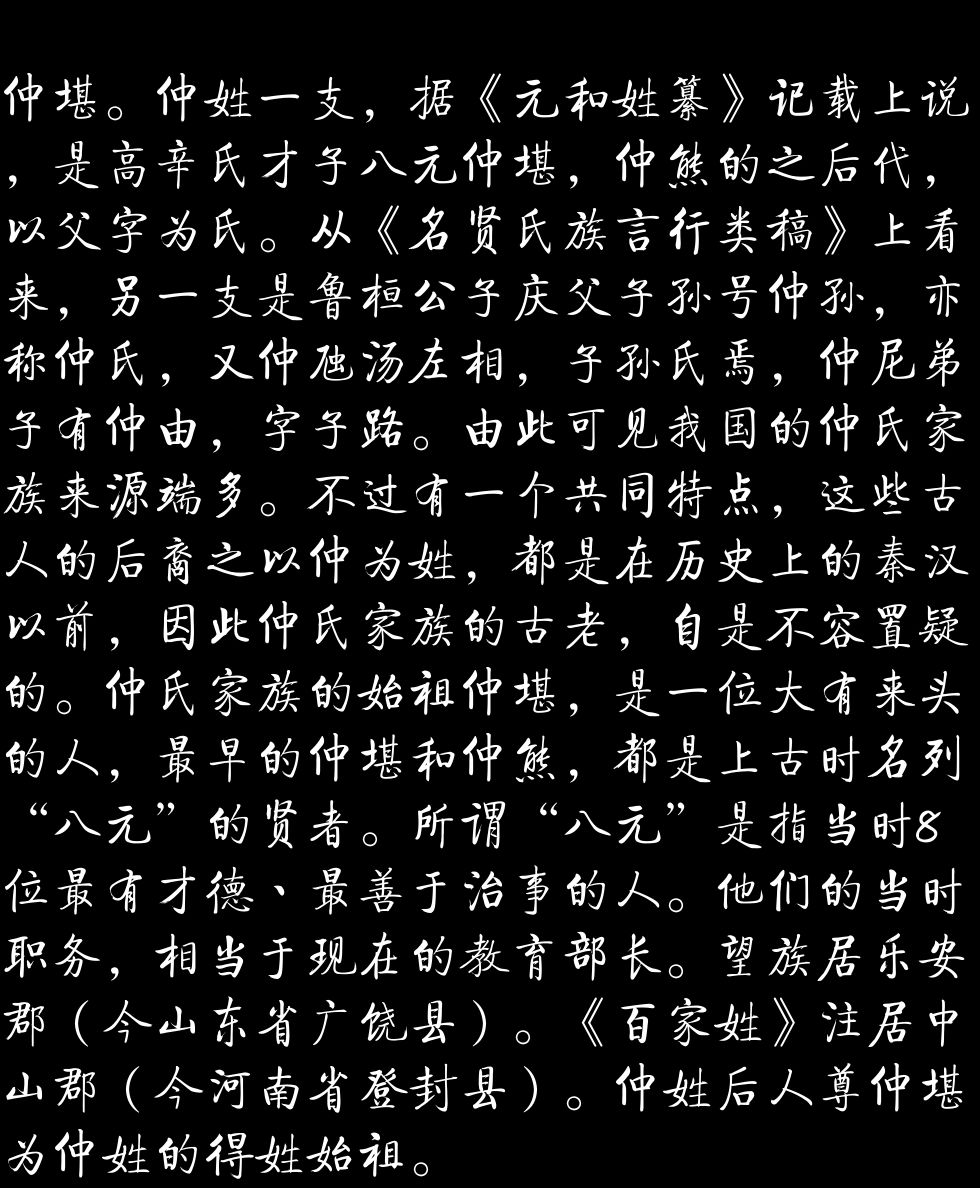 仲堪。仲姓一支，据《元和姓纂》记载上说
，是高辛氏才子八元仲堪，仲熊的之后代，
以父字为氏。从《名贤氏族言行类稿》上看
来，另一支是鲁桓公子庆父子孙号仲孙，亦
称仲氏，又仲虺汤左相，子孙氏焉，仲尼弟
子有仲由，字子路。由此可见我国的仲氏家
族来源端多。不过有一个共同特点，这些古
人的后裔之以仲为姓，都是在历史上的秦汉
以前，因此仲氏家族的古老，自是不容置疑
的。仲氏家族的始祖仲堪，是一位大有来头
的人，最早的仲堪和仲熊，都是上古时名列
“八元”的贤者。所谓“八元”是指当时8
位最有才德、最善于治事的人。他们的当时
职务，相当于现在的教育部长。望族居乐安
郡（今山东省广饶县）。《百家姓》注居中
山郡（今河南省登封县）。仲姓后人尊仲堪
为仲姓的得姓始祖。